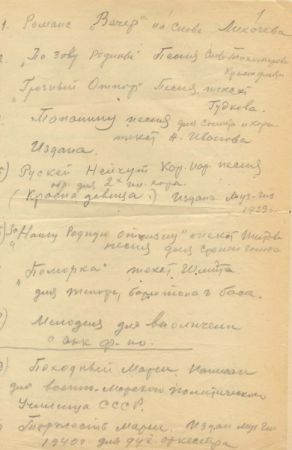 1
1. Романс „Вечер" на слова Лихачева
2. „По зову родины" Песня слова
Красноармейца
„Грозный Отпор" Песня, текст
Гудкова.
песня для солиста и хора.
текст А. Иванова
Издана
5) Русский Нейгут Кор. нар песня
обр. для 2х гол. хора.
(Красна девица.) Издана Муз-Гиз
1939г.
6) За нашу Родную отчизну" текст
песня для среднего голоса
„Поморка" текст Шмидта
для тенора, баритона и баса.
Мелодия для виолончели
с акк. ф-но.
Походный Марш. Написан
для военно-морского политического
Училища СССР.
Торжеств. марш. Издан Муз Гиз
1940г для дух. оркестра